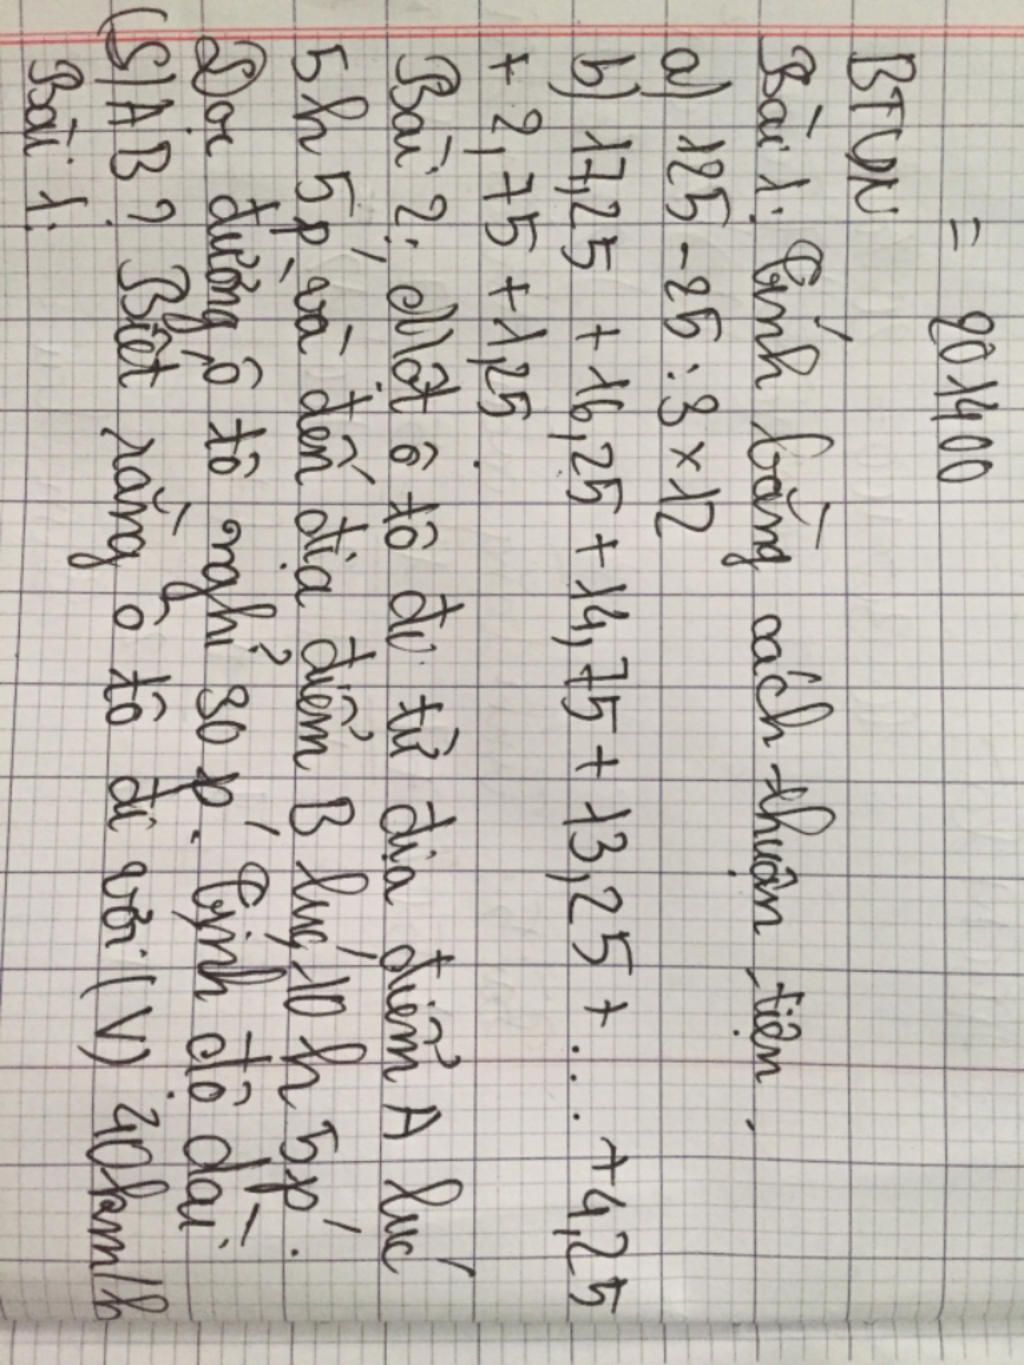 = 901400
BTVN
Bài 1: Tính bằng cách thuận tiện.
a) 125 - 25 : 3 × 12
b) 17,25 + 16,25 + 14,75 + 13,25 + .... + 4,25
+ 2,75 + 1,25.
Bài 2: Một ô tô đi từ địa điểm A lúc
5h 5p' và đến địa điểm B lúc 10h 5p'.
Dọc đường ô tô nghỉ 30p'. Tính độ dài
(S) AB? Biết rằng ô tô đi với (V) 40km/h
Bài 1: